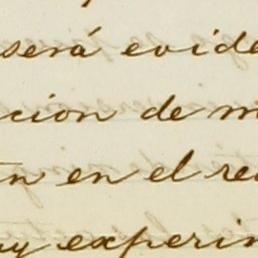 será evide
cion de m
en el re
y experim